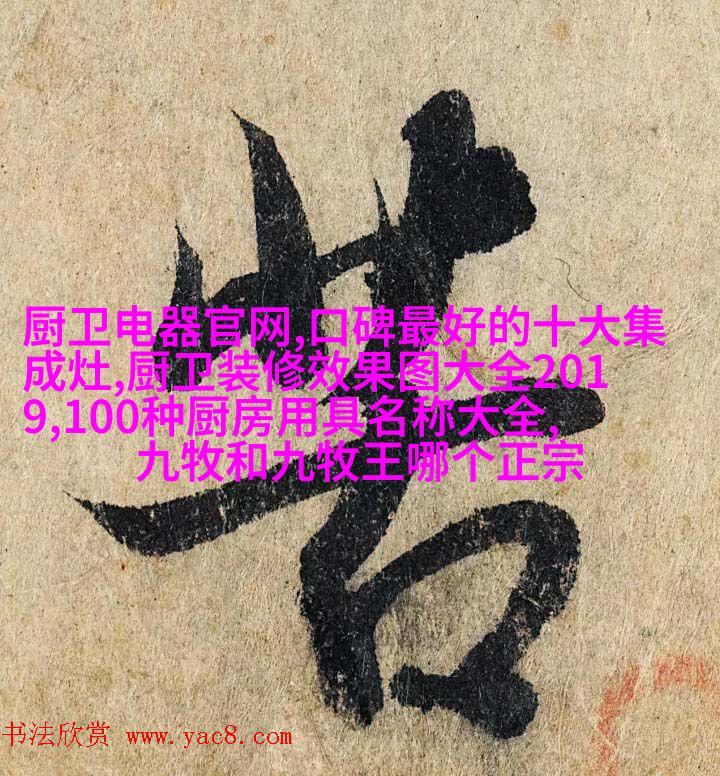 苦
厨卫电器官网,口碑最好的十大集
成灶,厨卫装修效果图大全201
9,100种厨房用具名称大全,
九牧和九牧王哪个正宗
书法欣赏 www.yac8.com